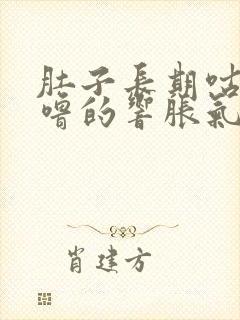 肚子長期咕
嚕的響脹氣
肖建方